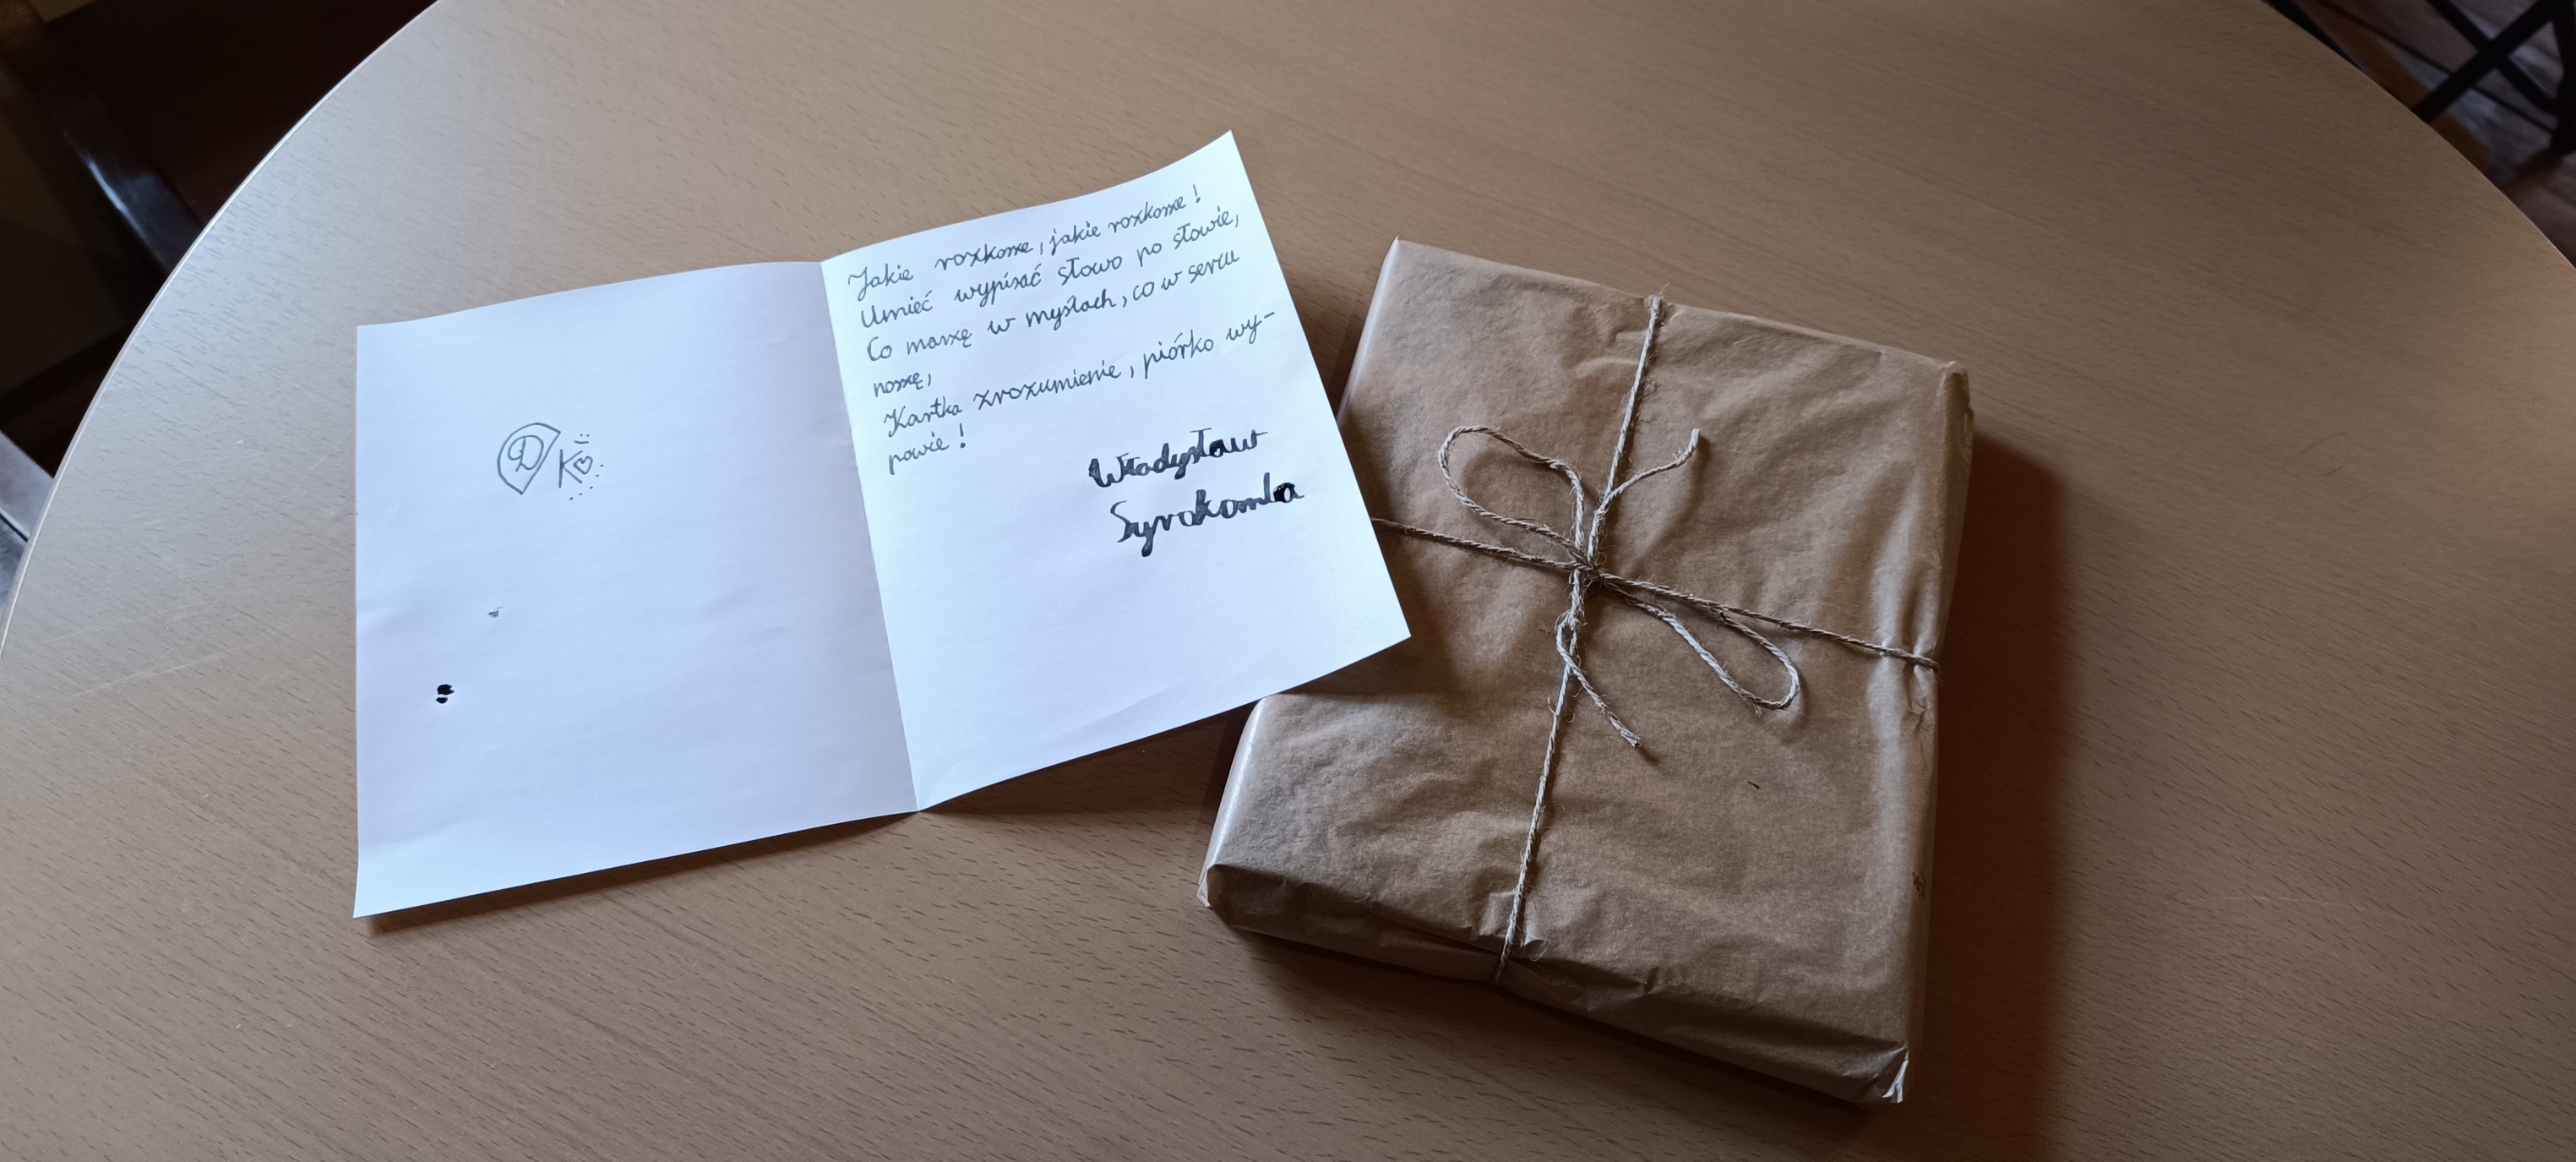 D
K
Jakie rozkosze, jakie rozkosze!
Umieć wypisać słowo po słowie,
Co marzę w myślach, co w sercu
noszę,
Kartka zrozumienie, piórko wy-
powie!
Władysław
Syrokomla